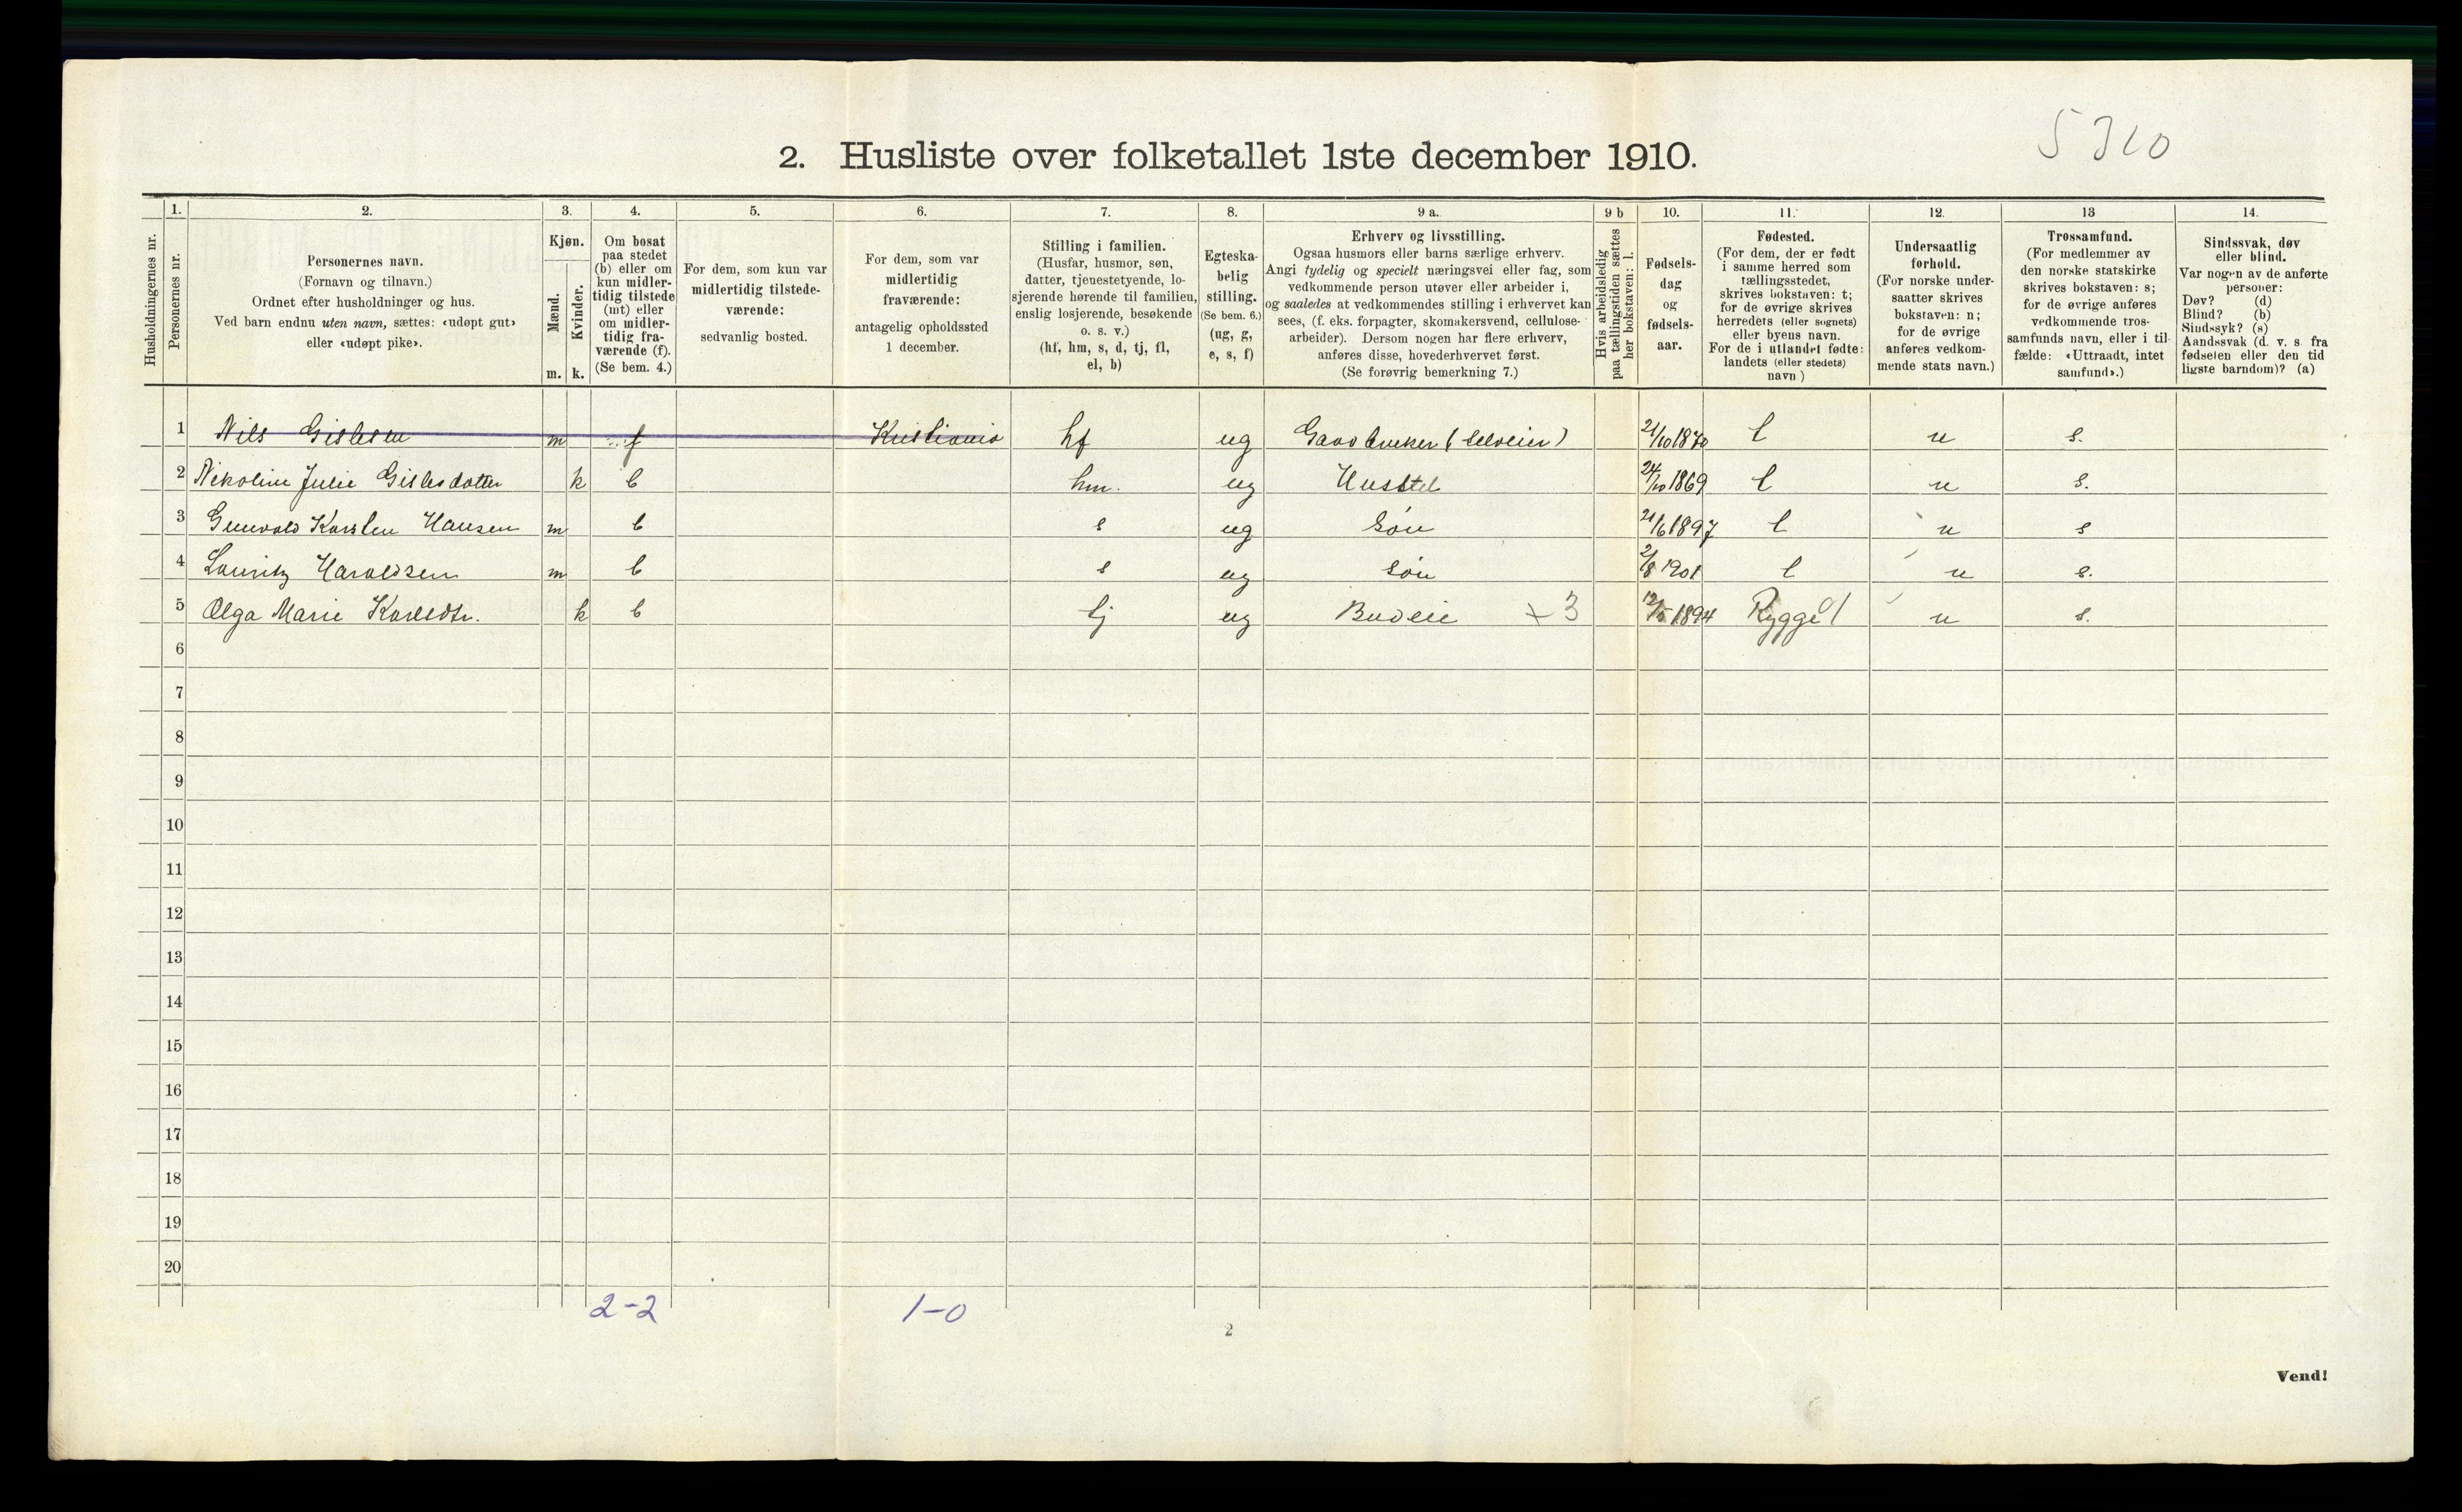 5310
2. Husliste over folketallet 1ste december 1910.
Husholdningernes nr.
1.
Personernes nr.
2.
Personernes navn.
(Fornavn og tilnavn.)
Ordnet efter husholdninger og hus.
Ved barn endnu uten navn, sættes: «udøpt gut»
eller «udøpt pike».
3.
Kjøn.
Mænd.
Kvinder.
m. k.
4.
Om bosat
paa stedet
(b) eller om
kun midler-
tidig tilstede
(mt) eller
om midler-
tidig fra-
værende (f).
(Se bem. 4.)
5.
For dem, som kun var
midlertidig tilstede-
værende:
sedvanlig bosted.
6.
For dem, som var
midlertidig
fraværende:
antagelig opholdssted
1 december.
7.
Stilling i familien.
(Husfar, husmor, søn,
datter, tjenestetyende, lo-
sjerende hørende til familien,
enslig losjerende, besøkende
o. s. v.)
(hf, hm, s, d, tj, fl,
el, b)
8.
Egteska-
belig
stilling.
(Se bem. 6.)
(ug, g,
e, s, f)
9 a.
Erhverv og livsstilling.
Ogsaa husmors eller barns særlige erhverv.
Angi tydelig og specielt næringsvei eller fag, som
vedkommende person utøver eller arbeider i,
og saaledes at vedkommendes stilling i erhvervet kan
sees, (f. eks. forpagter, skomakersvend, cellulose-
arbeider). Dersom nogen har flere erhverv,
anføres disse, hovederhvervet først.
(Se forøvrig bemerkning 7.)
9 b
Hvis arbeidsledig
paa tællingstiden sættes
her bokstaven: l.
10.
Fødsels-
dag
og
fødsels-
aar.
11.
Fødested.
(For dem, der er født
i samme herred som
tællingsstedet,
skrives bokstaven: t;
for de øvrige skrives
herredets (eller sognets)
eller byens navn.
For de i utlandet fødte:
landets (eller stedets)
navn.)
12.
Undersaatlig
forhold.
(For norske under-
saatter skrives
bokstaven: n;
for de øvrige
anføres vedkom-
mende stats navn.)
13
Trossamfund.
(For medlemmer av
den norske statskirke
skrives bokstaven: s;
for de øvrige anføres
vedkommende tros-
samfunds navn, eller i til-
fælde: «Uttraadt, intet
samfund».)
14.
Sindssvak, døv
eller blind.
Var nogen av de anførte
personer:
Døv? (d)
Blind? (b)
Sindssyk? (s)
Aandssvak (d. v. s. fra
fødselen eller den tid-
ligste barndom)? (a)
1 Nils Gislesen m f Kristiania hf ug Gaardbruker (selveier) 21/10 1870 t n s.
2 Nikoline Julie Gislesdatter k b hm. ug Husstel 24/10 1869 t n s.
3 Gunvald Karsten Hansen m b s ug Søn 21/6 1897 t n s
4 Lauritz Haraldsen m b s ug Søn 2/8 1901 t n s.
5 Olga Marie Karlsdtr. k b tj ug Budeie x 3 12/5 1894 Rygge n s.
6
7
8
9
10
11
12
13
14
15
16
17
18
19
20
2-2 1-0
2
Vend!